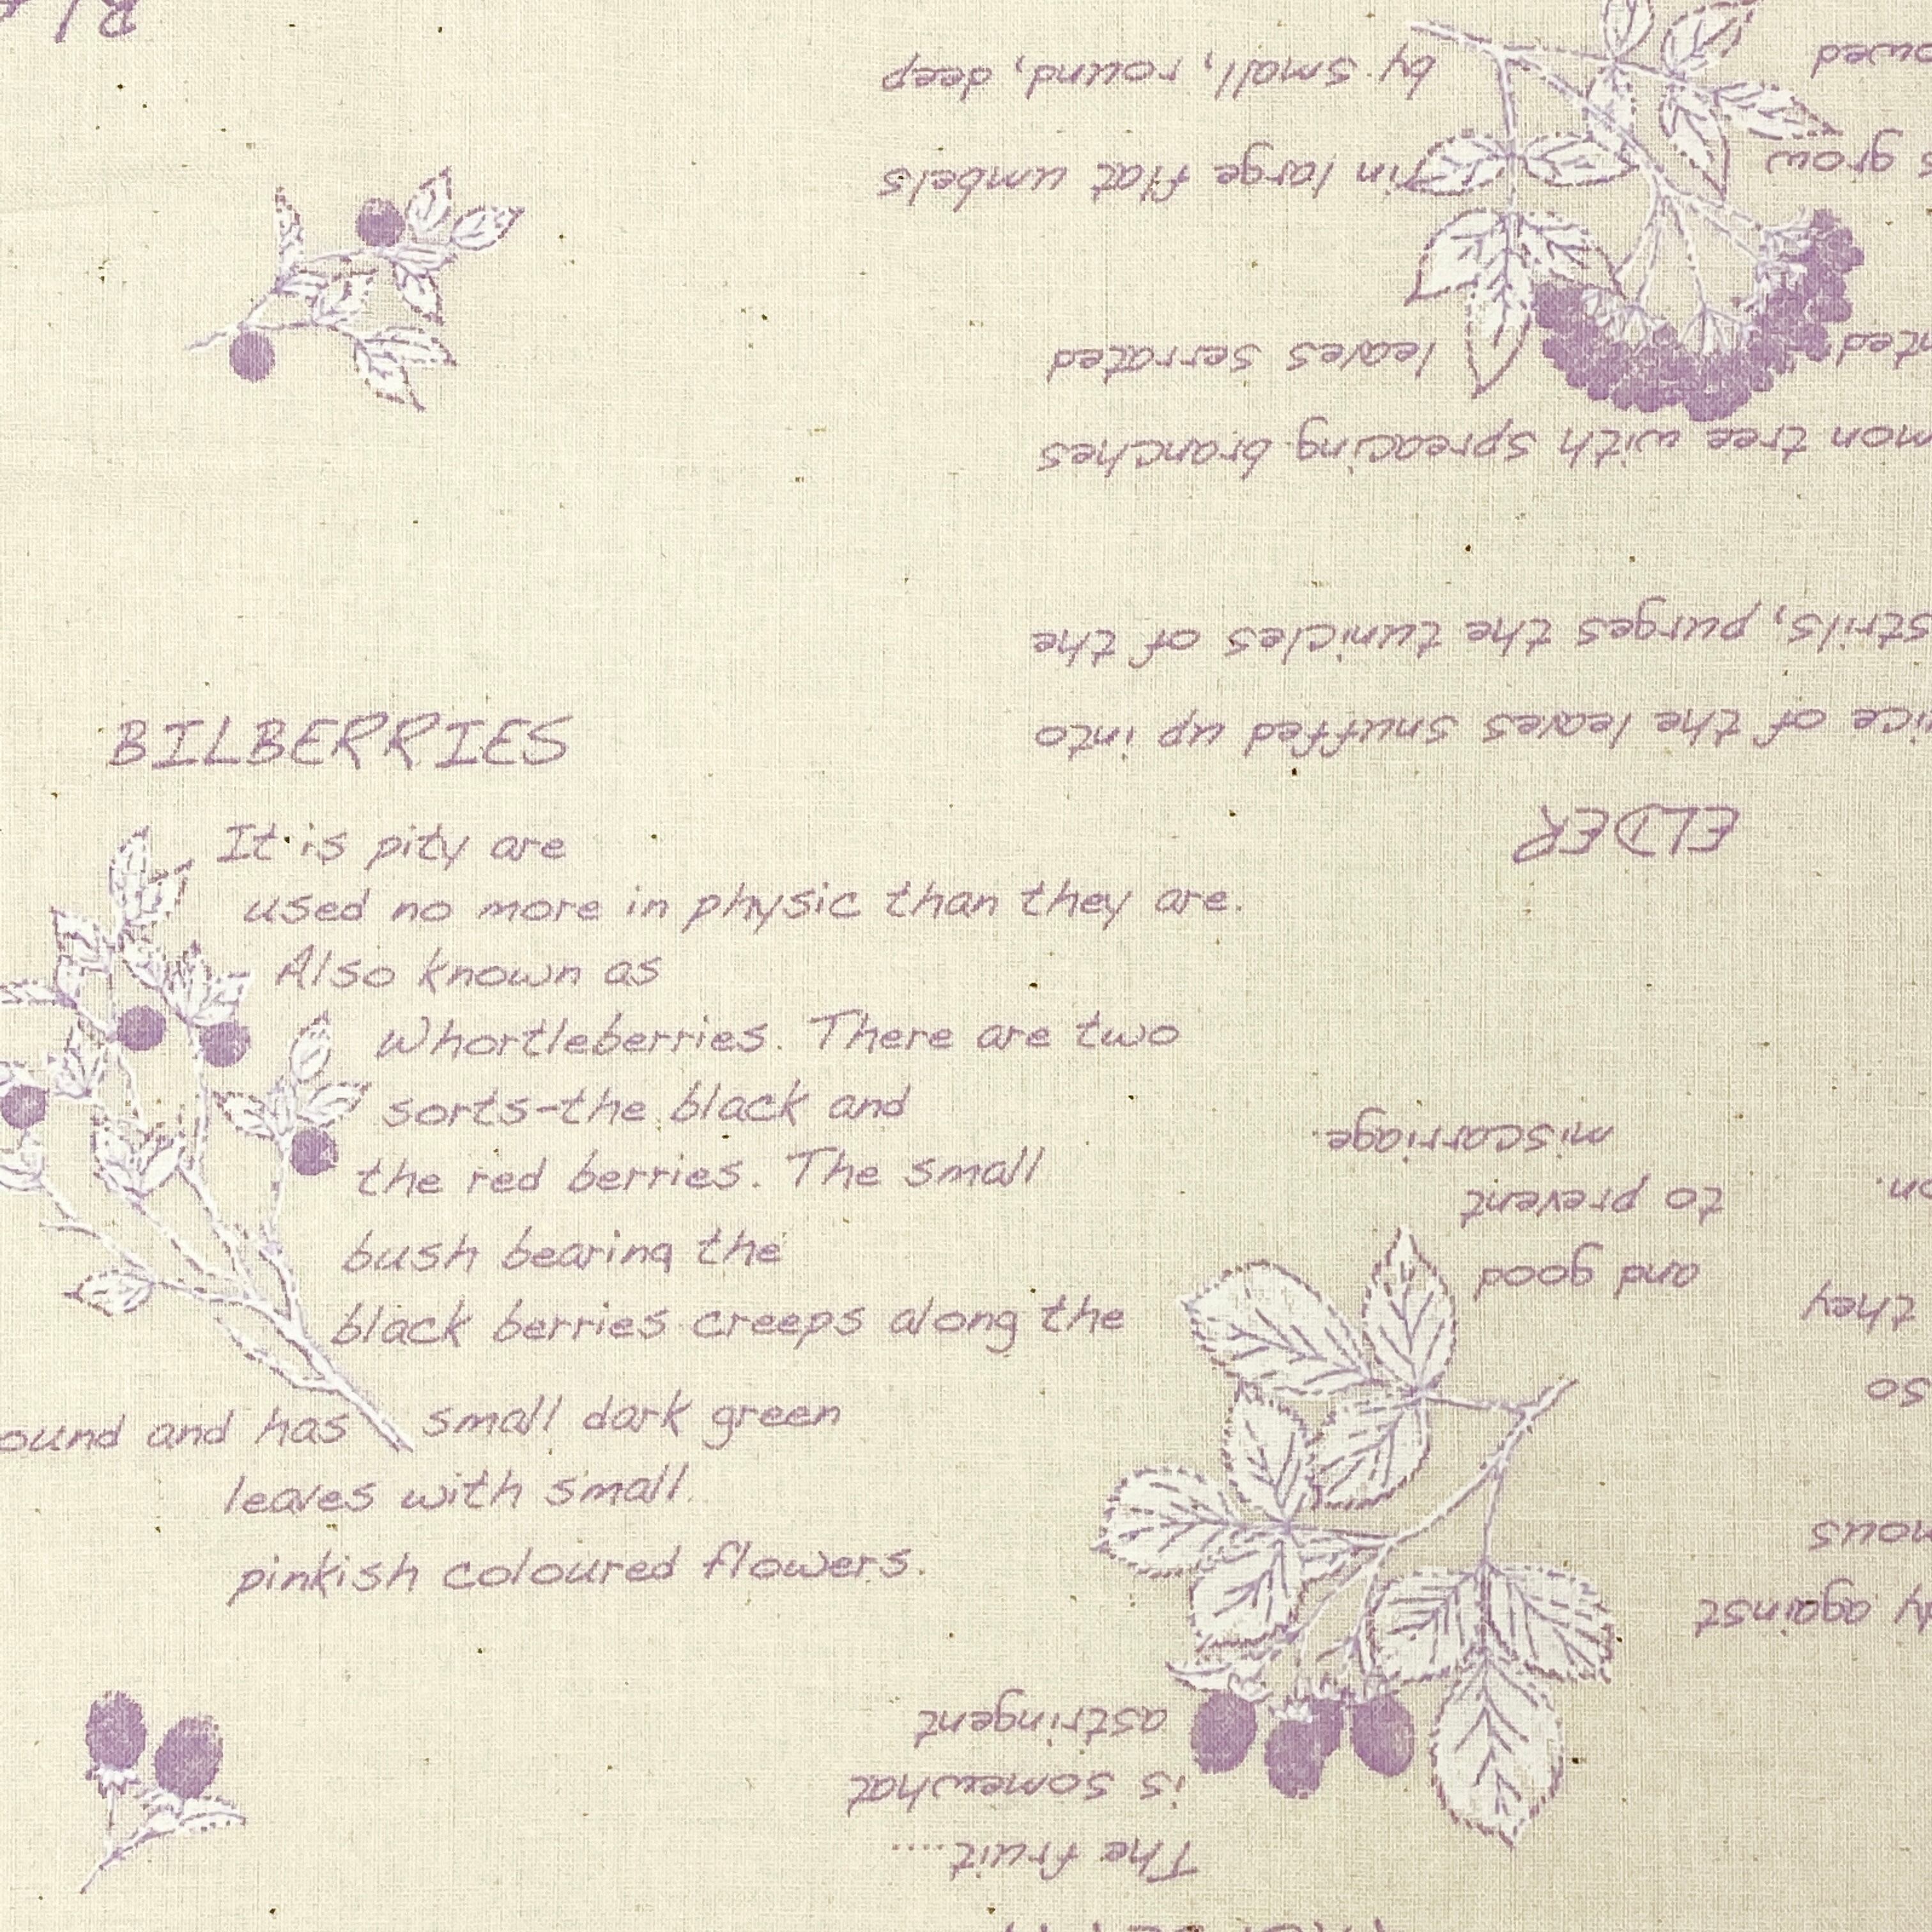 BILBERRIES
It is pity are
used no more in physic than they are.
Also known as
Whortleberries. There are two
sorts-the black and
the red berries. The small
bush bearing the
black berries creeps along the
ound and has small dark green
leaves with small
pinkish coloured flowers.
ELDER
ice of the leaves snuffed up into
strils, purges the tunicles of the
mon tree with spreading branches
leaves serrated
s grow in large flat umbels
owed by small, round, deep
The fruit....
is somewhat
astringent
y against
so
they
and good
to prevent
miscarriage.